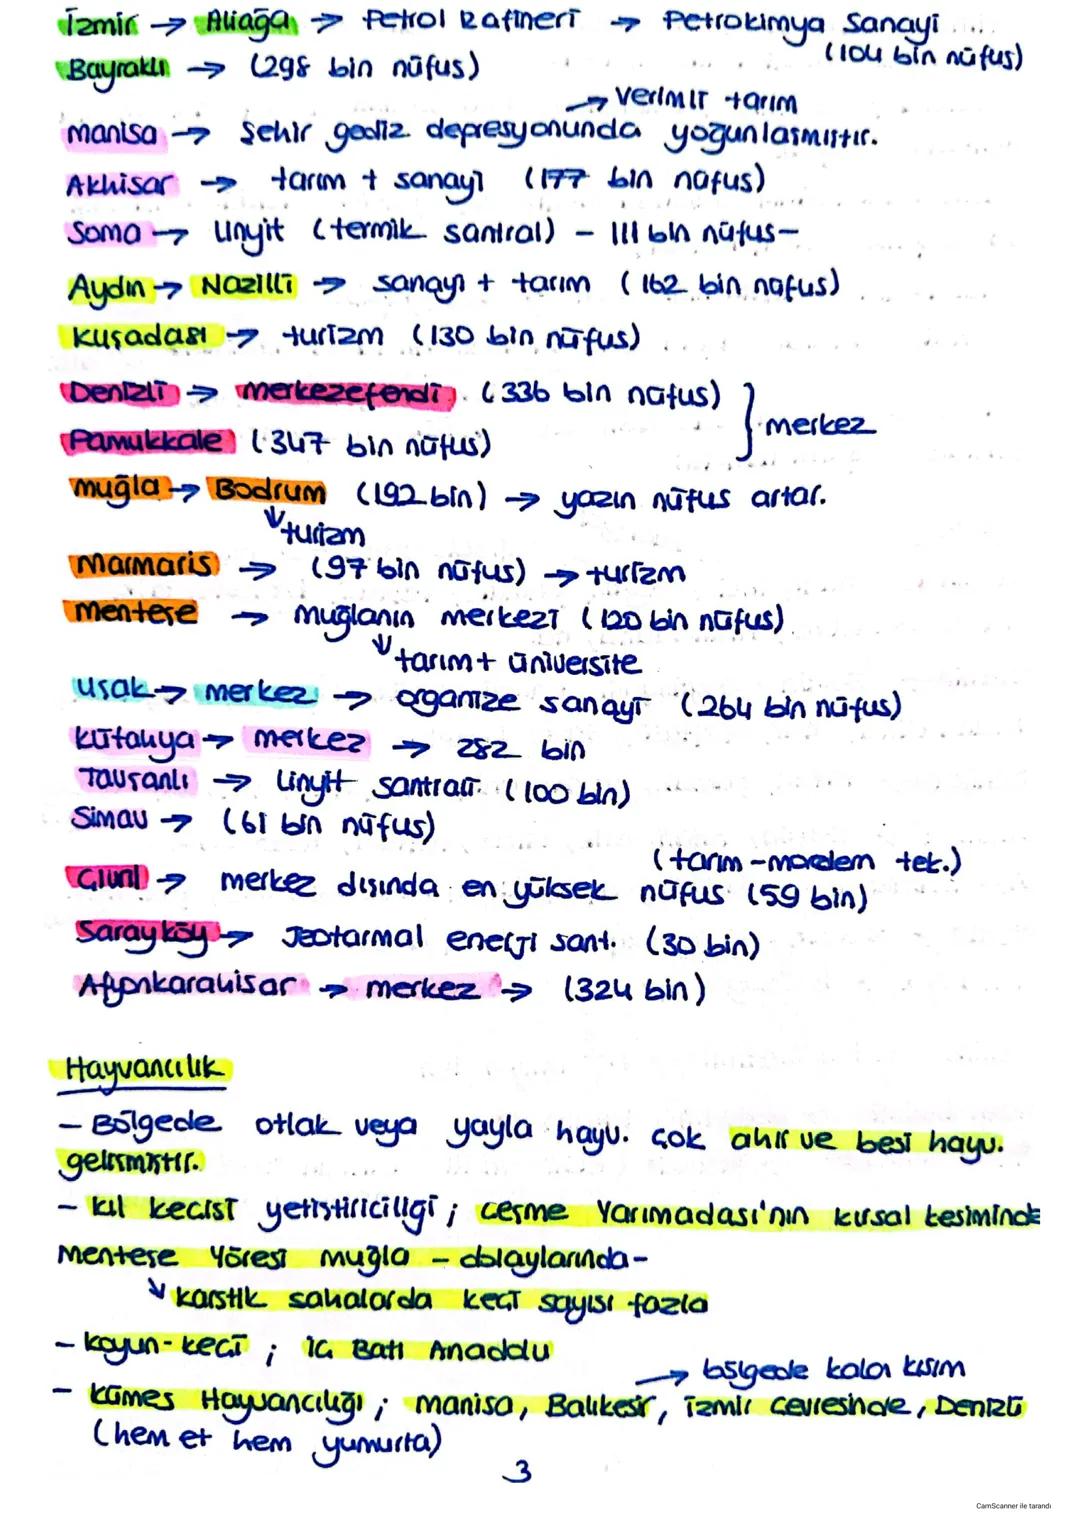 İzmir → Aliağa → Petrol Rafineri → Petrokimya Sanayi
(104 bin nüfus)
Bayraklı → (298 bin nüfus)
→ Verimli tarım
Manisa → Şehir gediz depresyonunda yoğunlaşmıştır.
Akhisar → tarım + sanayi (177 bin nüfus)
Soma → Linyit (termik santral) – 111 bin nüfus –
Aydın → Nazilli → sanayi + tarım (162 bin nüfus)
Kuşadası → turizm (130 bin nüfus)
Denizli → merkezefendi (336 bin nüfus)
} merkez
Pamukkale (347 bin nüfus)
muğla → Bodrum (192 bin) → yazın nüfus artar.
↓ turizm
Marmaris → (97 bin nüfus) → turizm
menteşe → muğlanın merkezi (120 bin nüfus)
↓ tarım + üniversite
uşak → merkez → organize sanayi (264 bin nüfus)
kütahya → merkez → 282 bin
Tavşanlı → Linyit santrali (100 bin)
Simav → (61 bin nüfus)
(tarım - mordem tek.)
Çivril → merkez dışında en yüksek nüfus (59 bin)
Sarayköy → Jeotarmal enerji sant. (30 bin)
Afyonkarahisar → merkez → (324 bin)
Hayvancılık
– Bölgede otlak veya yayla hayv. çok ahır ve besi hayv.
gelişmiştir.
– kıl keçisi yetiştiriciliği ; çeşme Yarımadası'nın kırsal kesiminde
Menteşe Yöresi muğla – dolaylarında –
↓ karstik sahalarda keçi sayısı fazla
– koyun - keçi ; iç Batı Anadolu
→ bölgede kalan kısım
– kümes Hayvancılığı ; manisa, Balıkesir, izmir çevresinde, Denizli
(hem et hem yumurta)
3
CamScanner ile tarandı